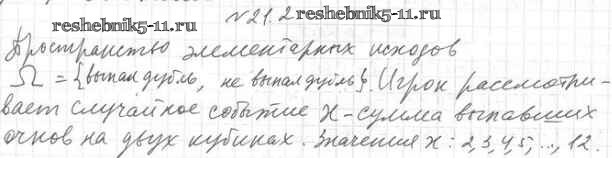 №21.2 reshebnik5-11.ru
reshebnik5-11.ru
Пространство элементарных исходов
Ω = {выпал дубль, не выпал дубль}. Игрок рассматри-
вает случайное событие X-сумма выпавших
очков на двух кубиках. Значения X: 2,3,4,5,..., 12.